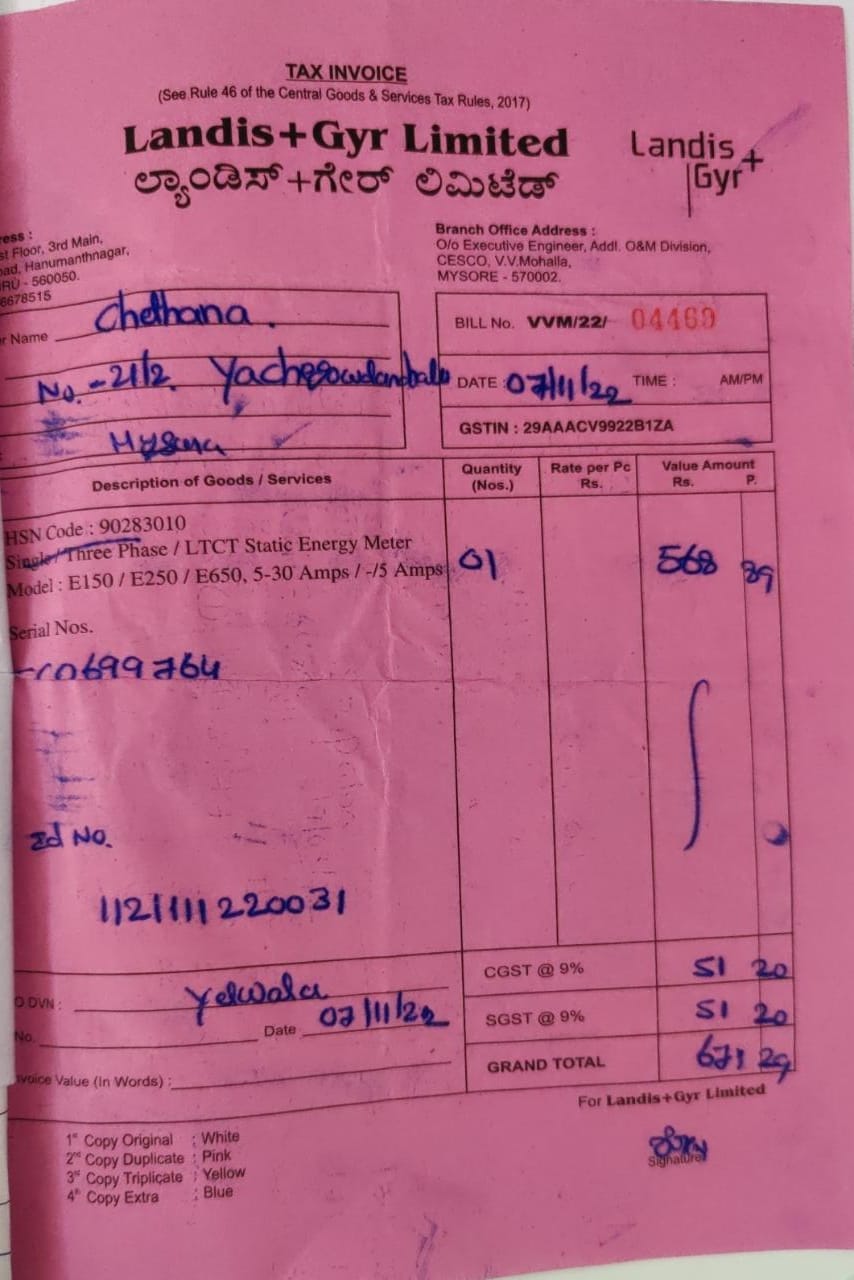 TAX INVOICE
(See Rule 46 of the Central Goods & Services Tax Rules, 2017)
Landis+Gyr Limited
ಲ್ಯಾಂಡಿಸ್+ಗೇರ್ ಲಿಮಿಟೆಡ್
Landis+
Gyr
ress :
st Floor, 3rd Main,
oad, Hanumanthnagar,
RU - 560050.
6678515
Branch Office Address :
O/o Executive Engineer, Addl. O&M Division,
CESCO, V.V.Mohalla,
MYSORE - 570002.
r Name Chethana.
No. - 21/2.
Mysuru
BILL No. VVM/22/ 04469
DATE : 07/11/22 TIME : AM/PM
GSTIN : 29AAACV9922B1ZA
Description of Goods / Services Quantity (Nos.) Rate per Pc Rs. Value Amount Rs. P.
HSN Code : 90283010
Single / Three Phase / LTCT Static Energy Meter
Model : E150 / E250 / E650, 5-30 Amps / -/5 Amps 01 568 89
Serial Nos.
0699764
Id No.
1121111220031
CGST @ 9% 51 20
SGST @ 9% 51 20
GRAND TOTAL 671 29
O.DVN : Yelwala
No. Date 07/11/22
nvoice Value (In Words) :
For Landis+Gyr Limited
Signature
1st Copy Original : White
2nd Copy Duplicate : Pink
3rd Copy Triplicate : Yellow
4th Copy Extra : Blue